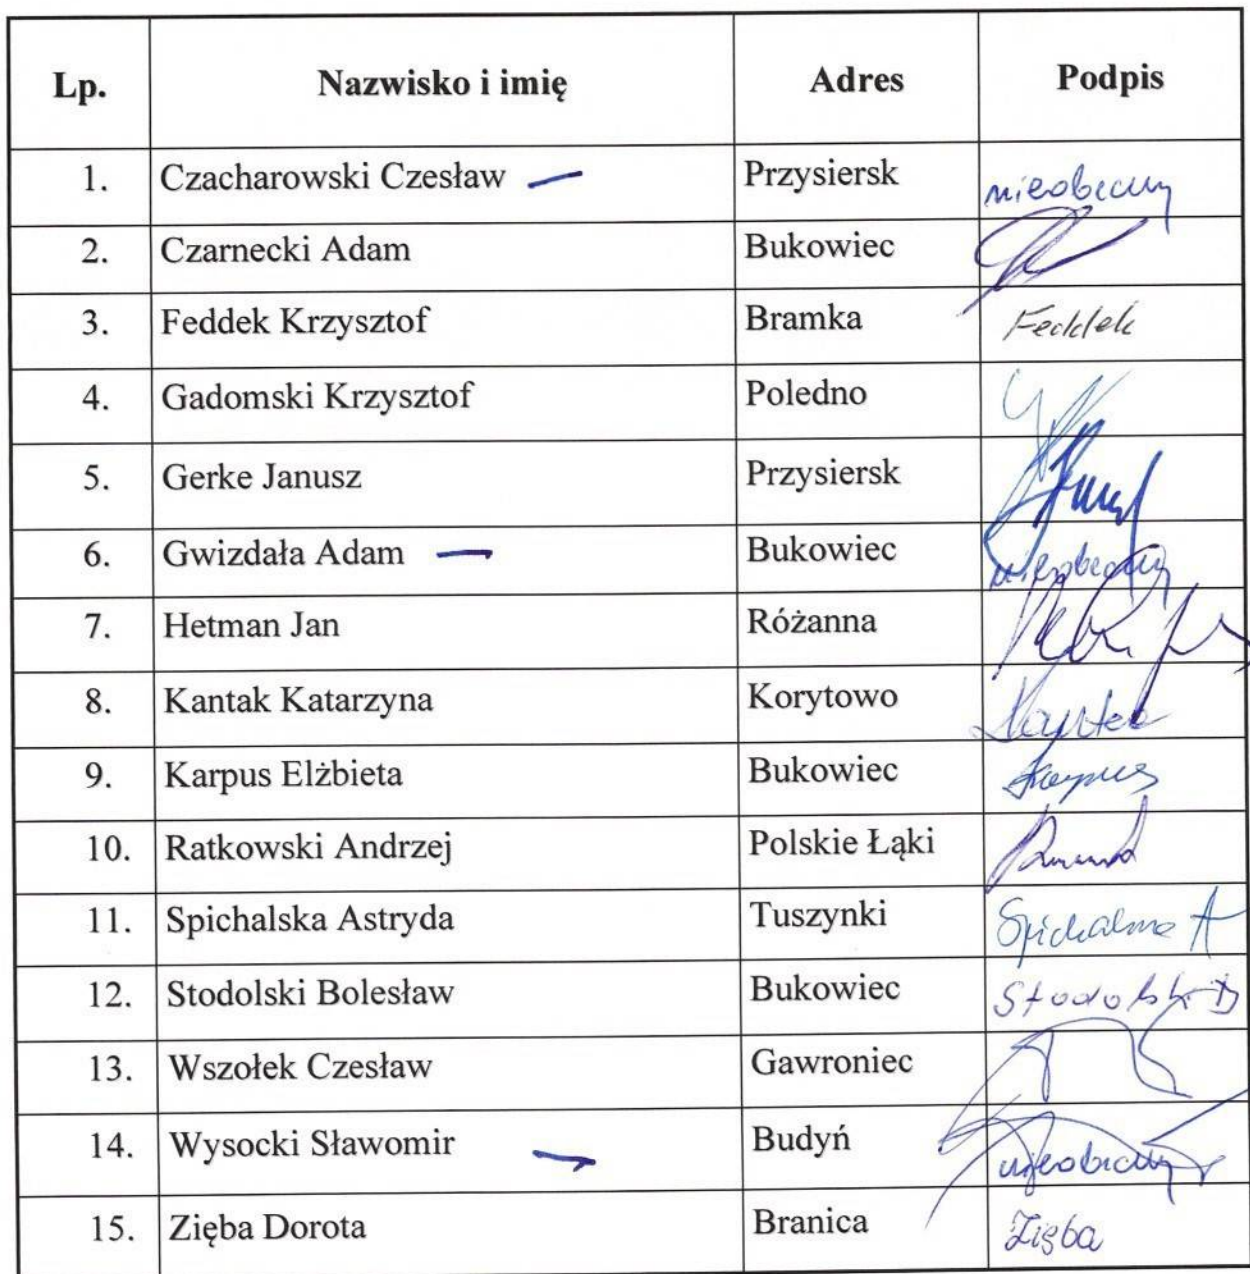 Lp. Nazwisko i imię Adres Podpis
1. Czacharowski Czesław Przysiersk nieobecny
2. Czarnecki Adam Bukowiec
3. Feddek Krzysztof Bramka Feddek
4. Gadomski Krzysztof Poledno
5. Gerke Janusz Przysiersk
6. Gwizdała Adam Bukowiec nieobecny
7. Hetman Jan Różanna
8. Kantak Katarzyna Korytowo
9. Karpus Elżbieta Bukowiec Karpus
10. Ratkowski Andrzej Polskie Łąki
11. Spichalska Astryda Tuszynki
12. Stodolski Bolesław Bukowiec Stodolski B
13. Wszołek Czesław Gawroniec
14. Wysocki Sławomir Budyń nieobecny
15. Zięba Dorota Branica Zięba